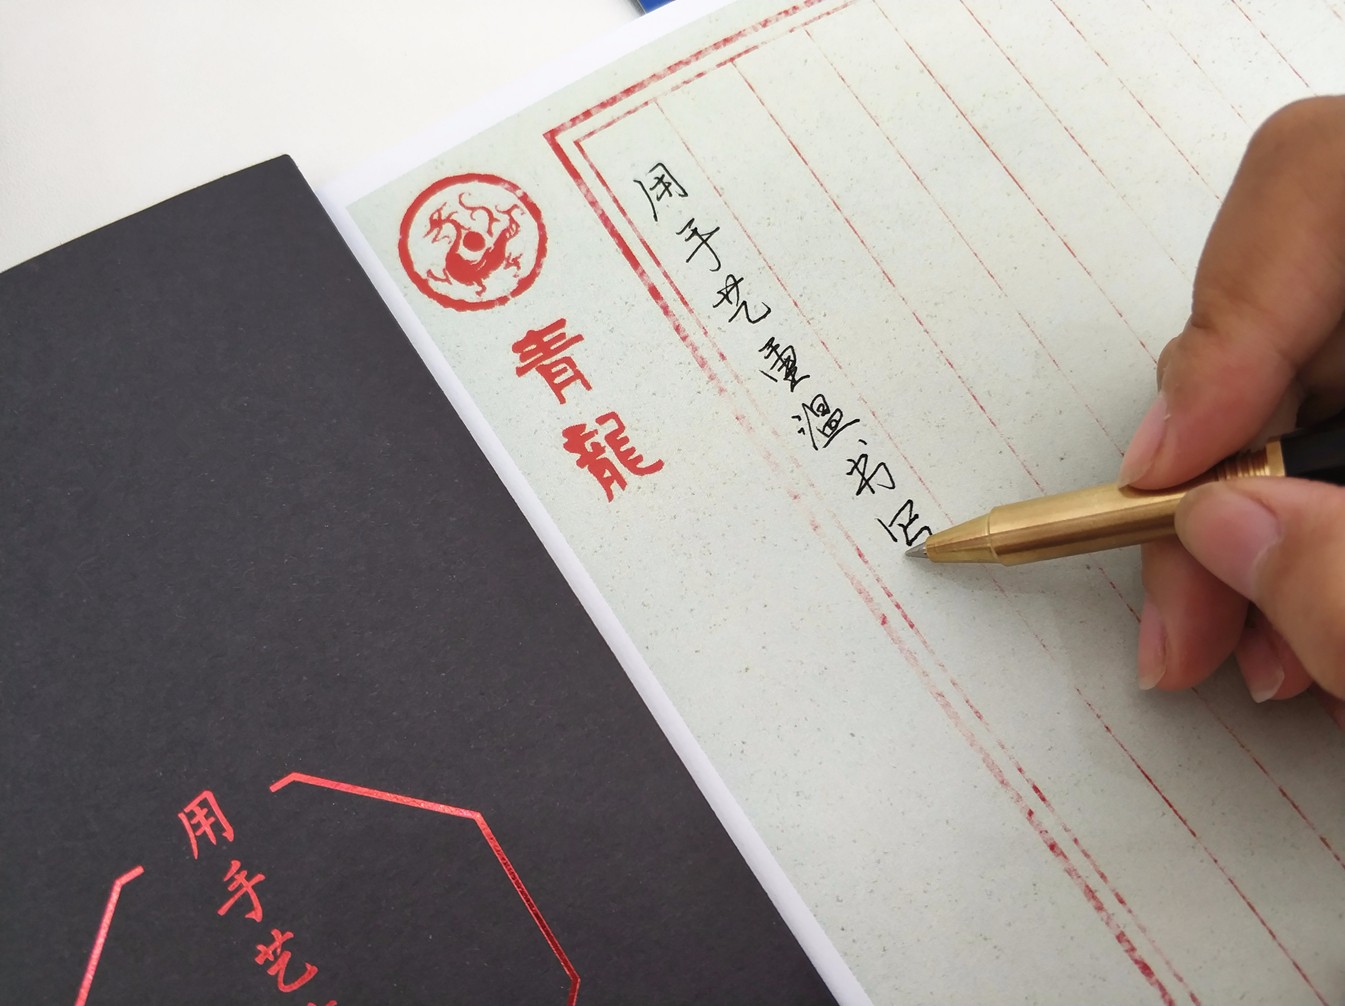 青龍
用手艺重温书写
用手艺